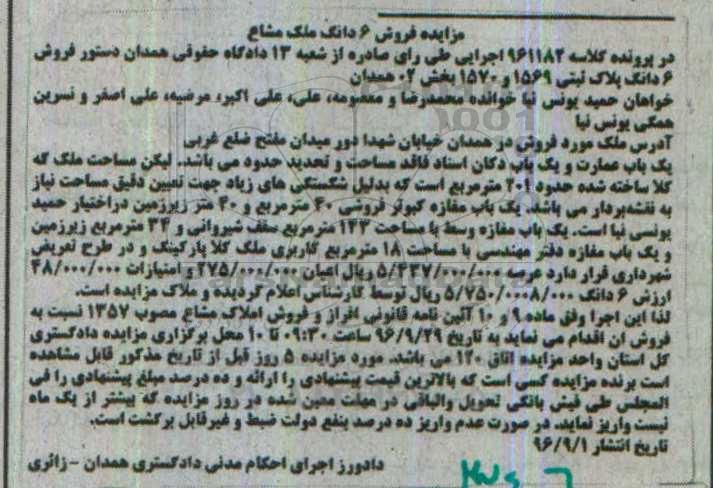 مزایده فروش ۶ دانگ ملک مشاع
در پرونده کلاسه ۹۶۱۱۸۲ اجرایی طی رای صادره از شعبه ۱۳ دادگاه حقوقی همدان دستور فروش
۶ دانگ پلاک ثبتی ۱۵۶۹ و ۱۵۷۰ بخش ۰۲ همدان
خواهان حمید یونس نیا خوانده محمدرضا و معصومه، علی، علی اکبر، مرضیه، علی اصغر و نسرین
همگی یونس نیا
آدرس ملک مورد فروش در همدان خیابان شهدا دور میدان مفتح ضلع غربی
یک باب عمارت و یک باب دکان اسناد فاقد مساحت و تحدید حدود می باشد. لیکن مساحت ملک که
کلا ساخته شده حدود ۲۰۱ مترمربع است که بدلیل شکستگی های زیاد جهت تعیین دقیق مساحت نیاز
به نقشه‌بردار می باشد. یک باب مغازه کبوتر فروشی ۴۰ مترمربع و ۴۰ متر زیرزمین دراختیار حمید
یونسی نیا است. یک باب مغازه وسط با مساحت ۱۴۳ مترمربع سقف شیروانی و ۳۴ مترمربع زیرزمین
و یک باب مغازه دفتر مهندسی با مساحت ۱۸ مترمربع کاربری ملک کلا پارکینگ و در طرح تعریض
شهرداری قرار دارد عرصه ۵/۴۲۷/۰۰۰/۰۰۰ ریال اعیان ۲۷۵/۰۰۰/۰۰۰ و امتیازات ۴۸/۰۰۰/۰۰۰
ارزش ۶ دانگ ۵/۷۵۰/۰۰۰۸/۰۰۰ ریال توسط کارشناس اعلام گردیده و ملاک مزایده است.
لذا این اجرا وفق ماده ۹ و ۱۰ آئین نامه قانونی افراز و فروش املاک مشاع مصوب ۱۳۵۷ نسبت به
فروش ان اقدام می نماید به تاریخ ۹۶/۹/۲۹ ساعت ۰۹:۳۰ تا ۱۰ محل برگزاری مزایده دادگستری
کل استان واحد مزایده اتاق ۱۲۰ می باشد. مورد مزایده ۵ روز قبل از تاریخ مذکور قابل مشاهده
است برنده مزایده کسی است که بالاترین قیمت پیشنهادی را ارائه و ده درصد مبلغ پیشنهادی را فی
المجلس طی فیش بانکی تحویل والباقی در مهلت معین شده در روز مزایده که بیشتر از یک ماه
نیست واریز نماید. در صورت عدم واریز ده درصد بنفع دولت ضبط و غیرقابل برگشت است.
تاریخ انتشار ۹۶/۹/۱
دادورز اجرای احکام مدنی دادگستری همدان - زائری